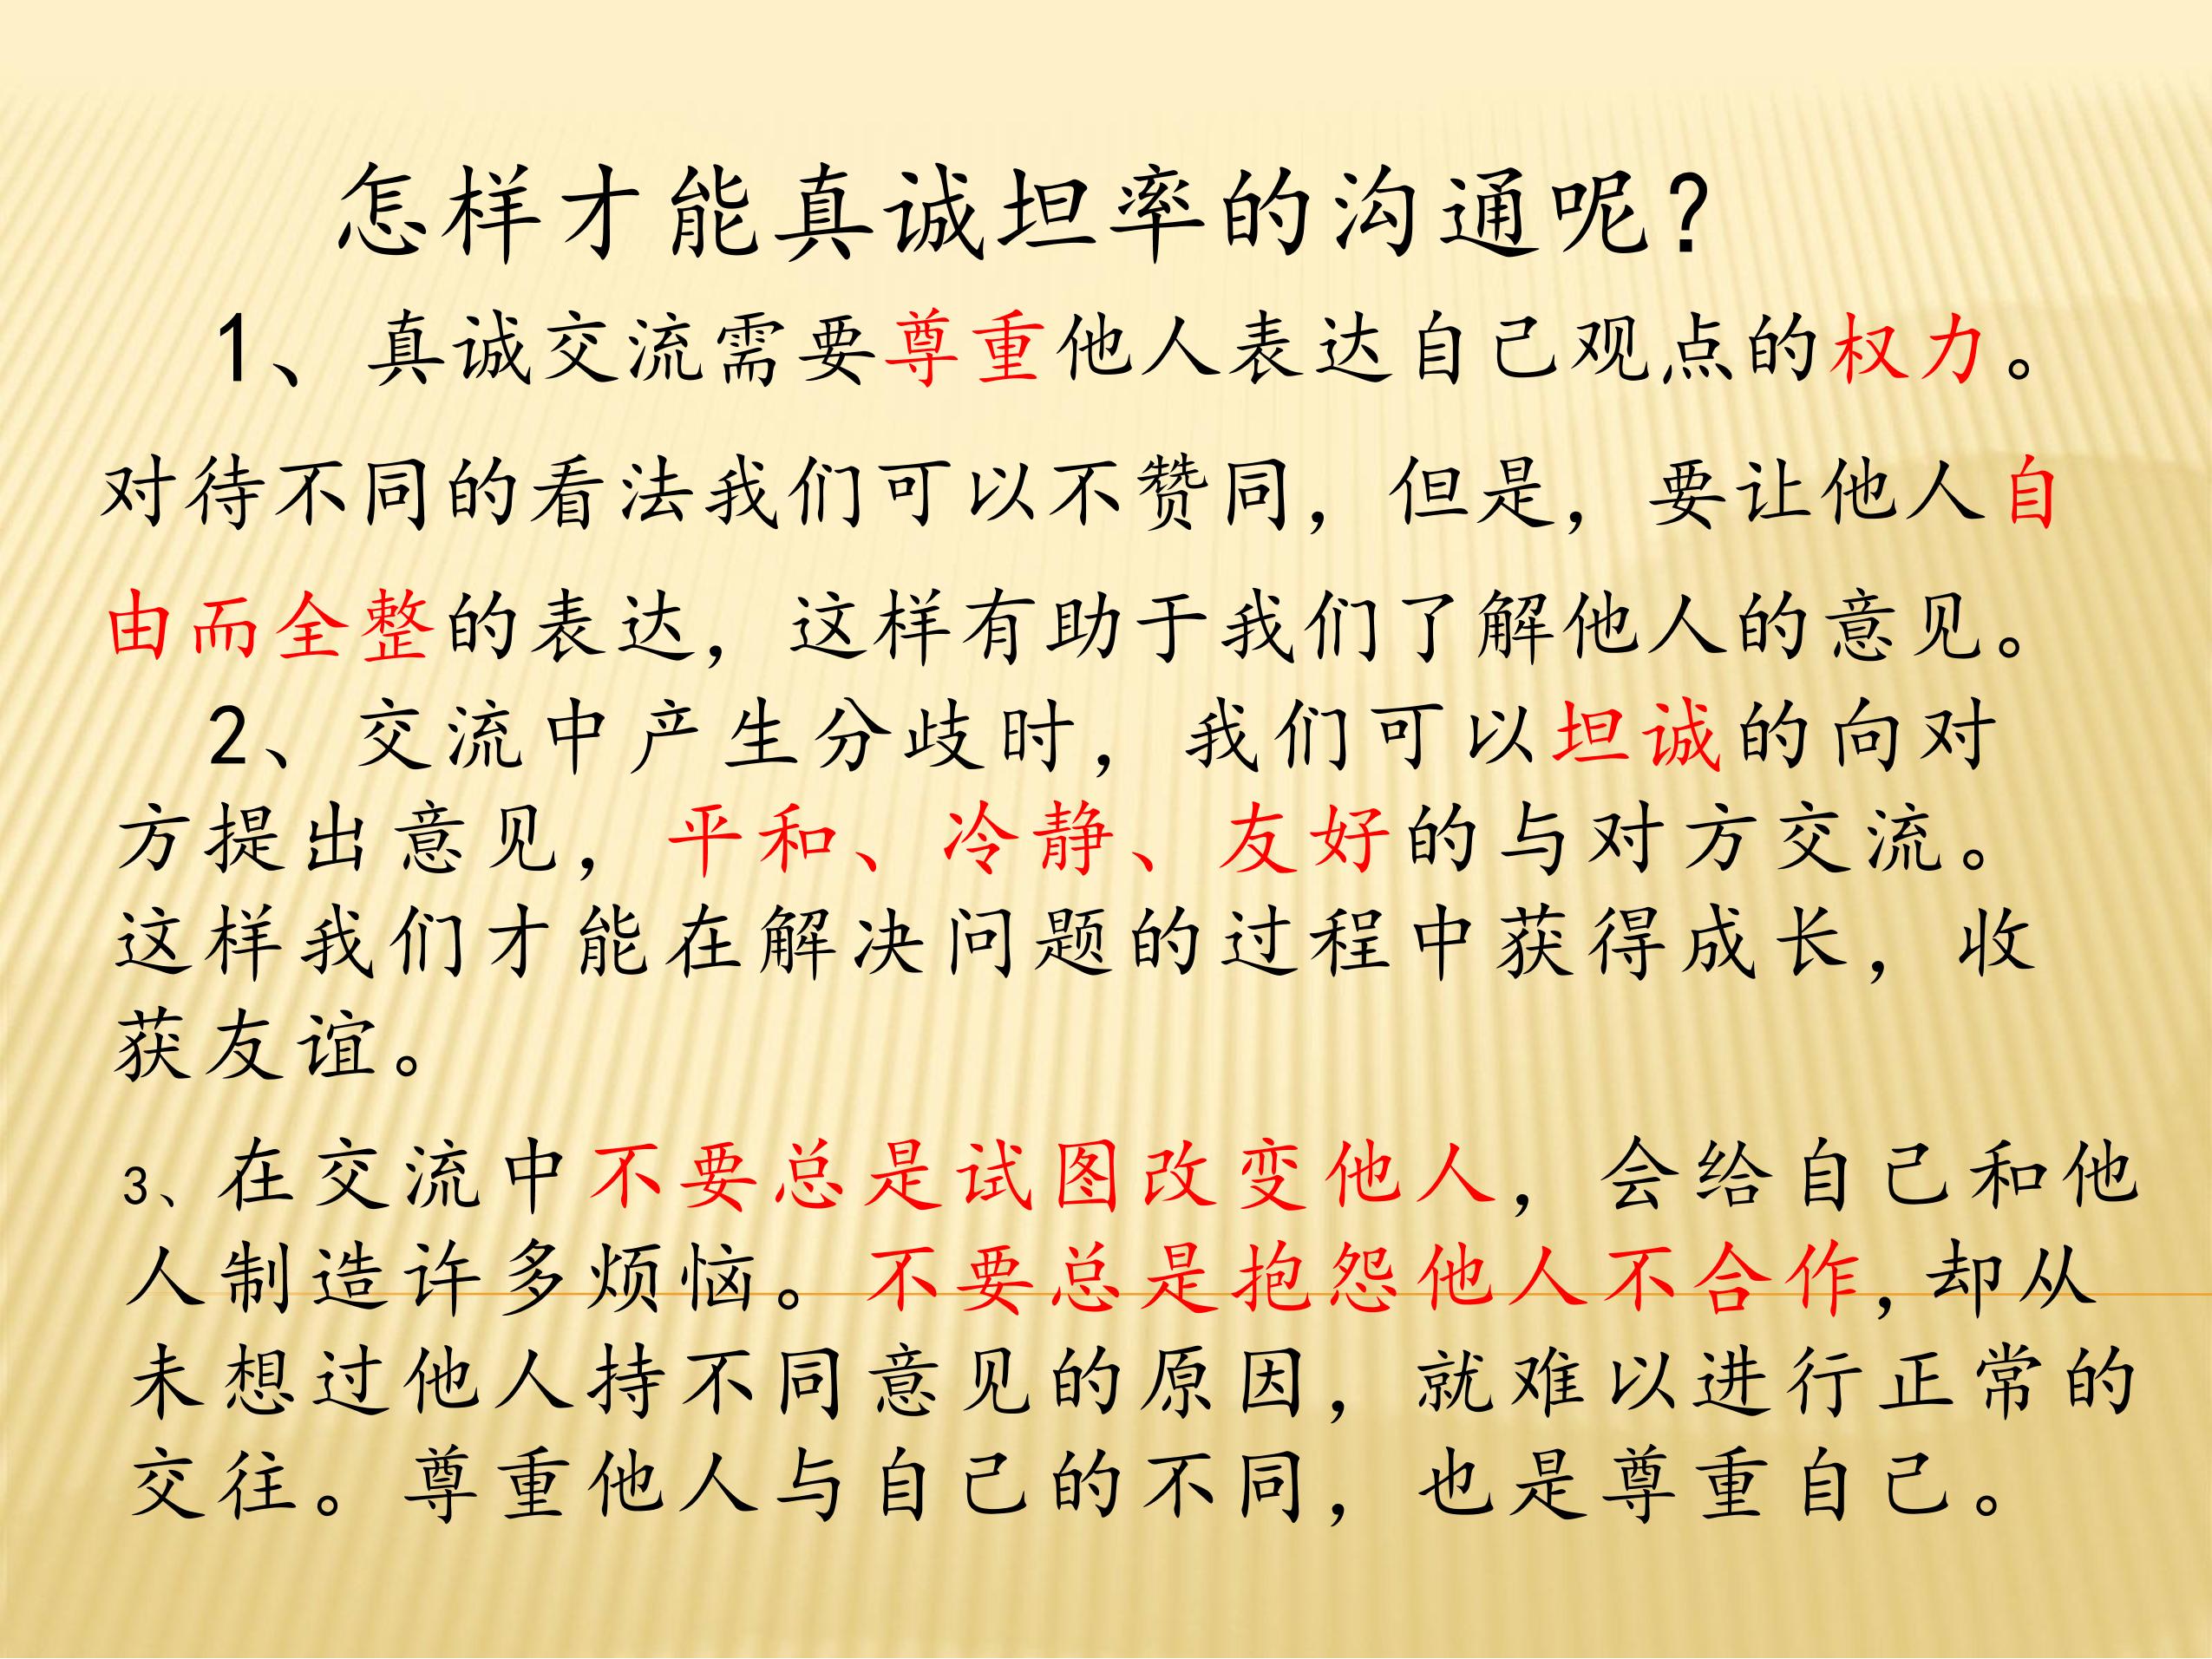 怎样才能真诚坦率的沟通呢?
1、真诚交流需要尊重他人表达自己观点的权力。
对待不同的看法我们可以不赞同，但是，要让他人自
由而全整的表达，这样有助于我们了解他人的意见。
2、交流中产生分歧时，我们可以坦诚的向对
方提出意见，平和、冷静、友好的与对方交流。
这样我们才能在解决问题的过程中获得成长，收
获友谊。
3、在交流中不要总是试图改变他人，会给自己和他
人制造许多烦恼。不要总是抱怨他人不合作，却从
未想过他人持不同意见的原因，就难以进行正常的
交往。尊重他人与自己的不同，也是尊重自己。